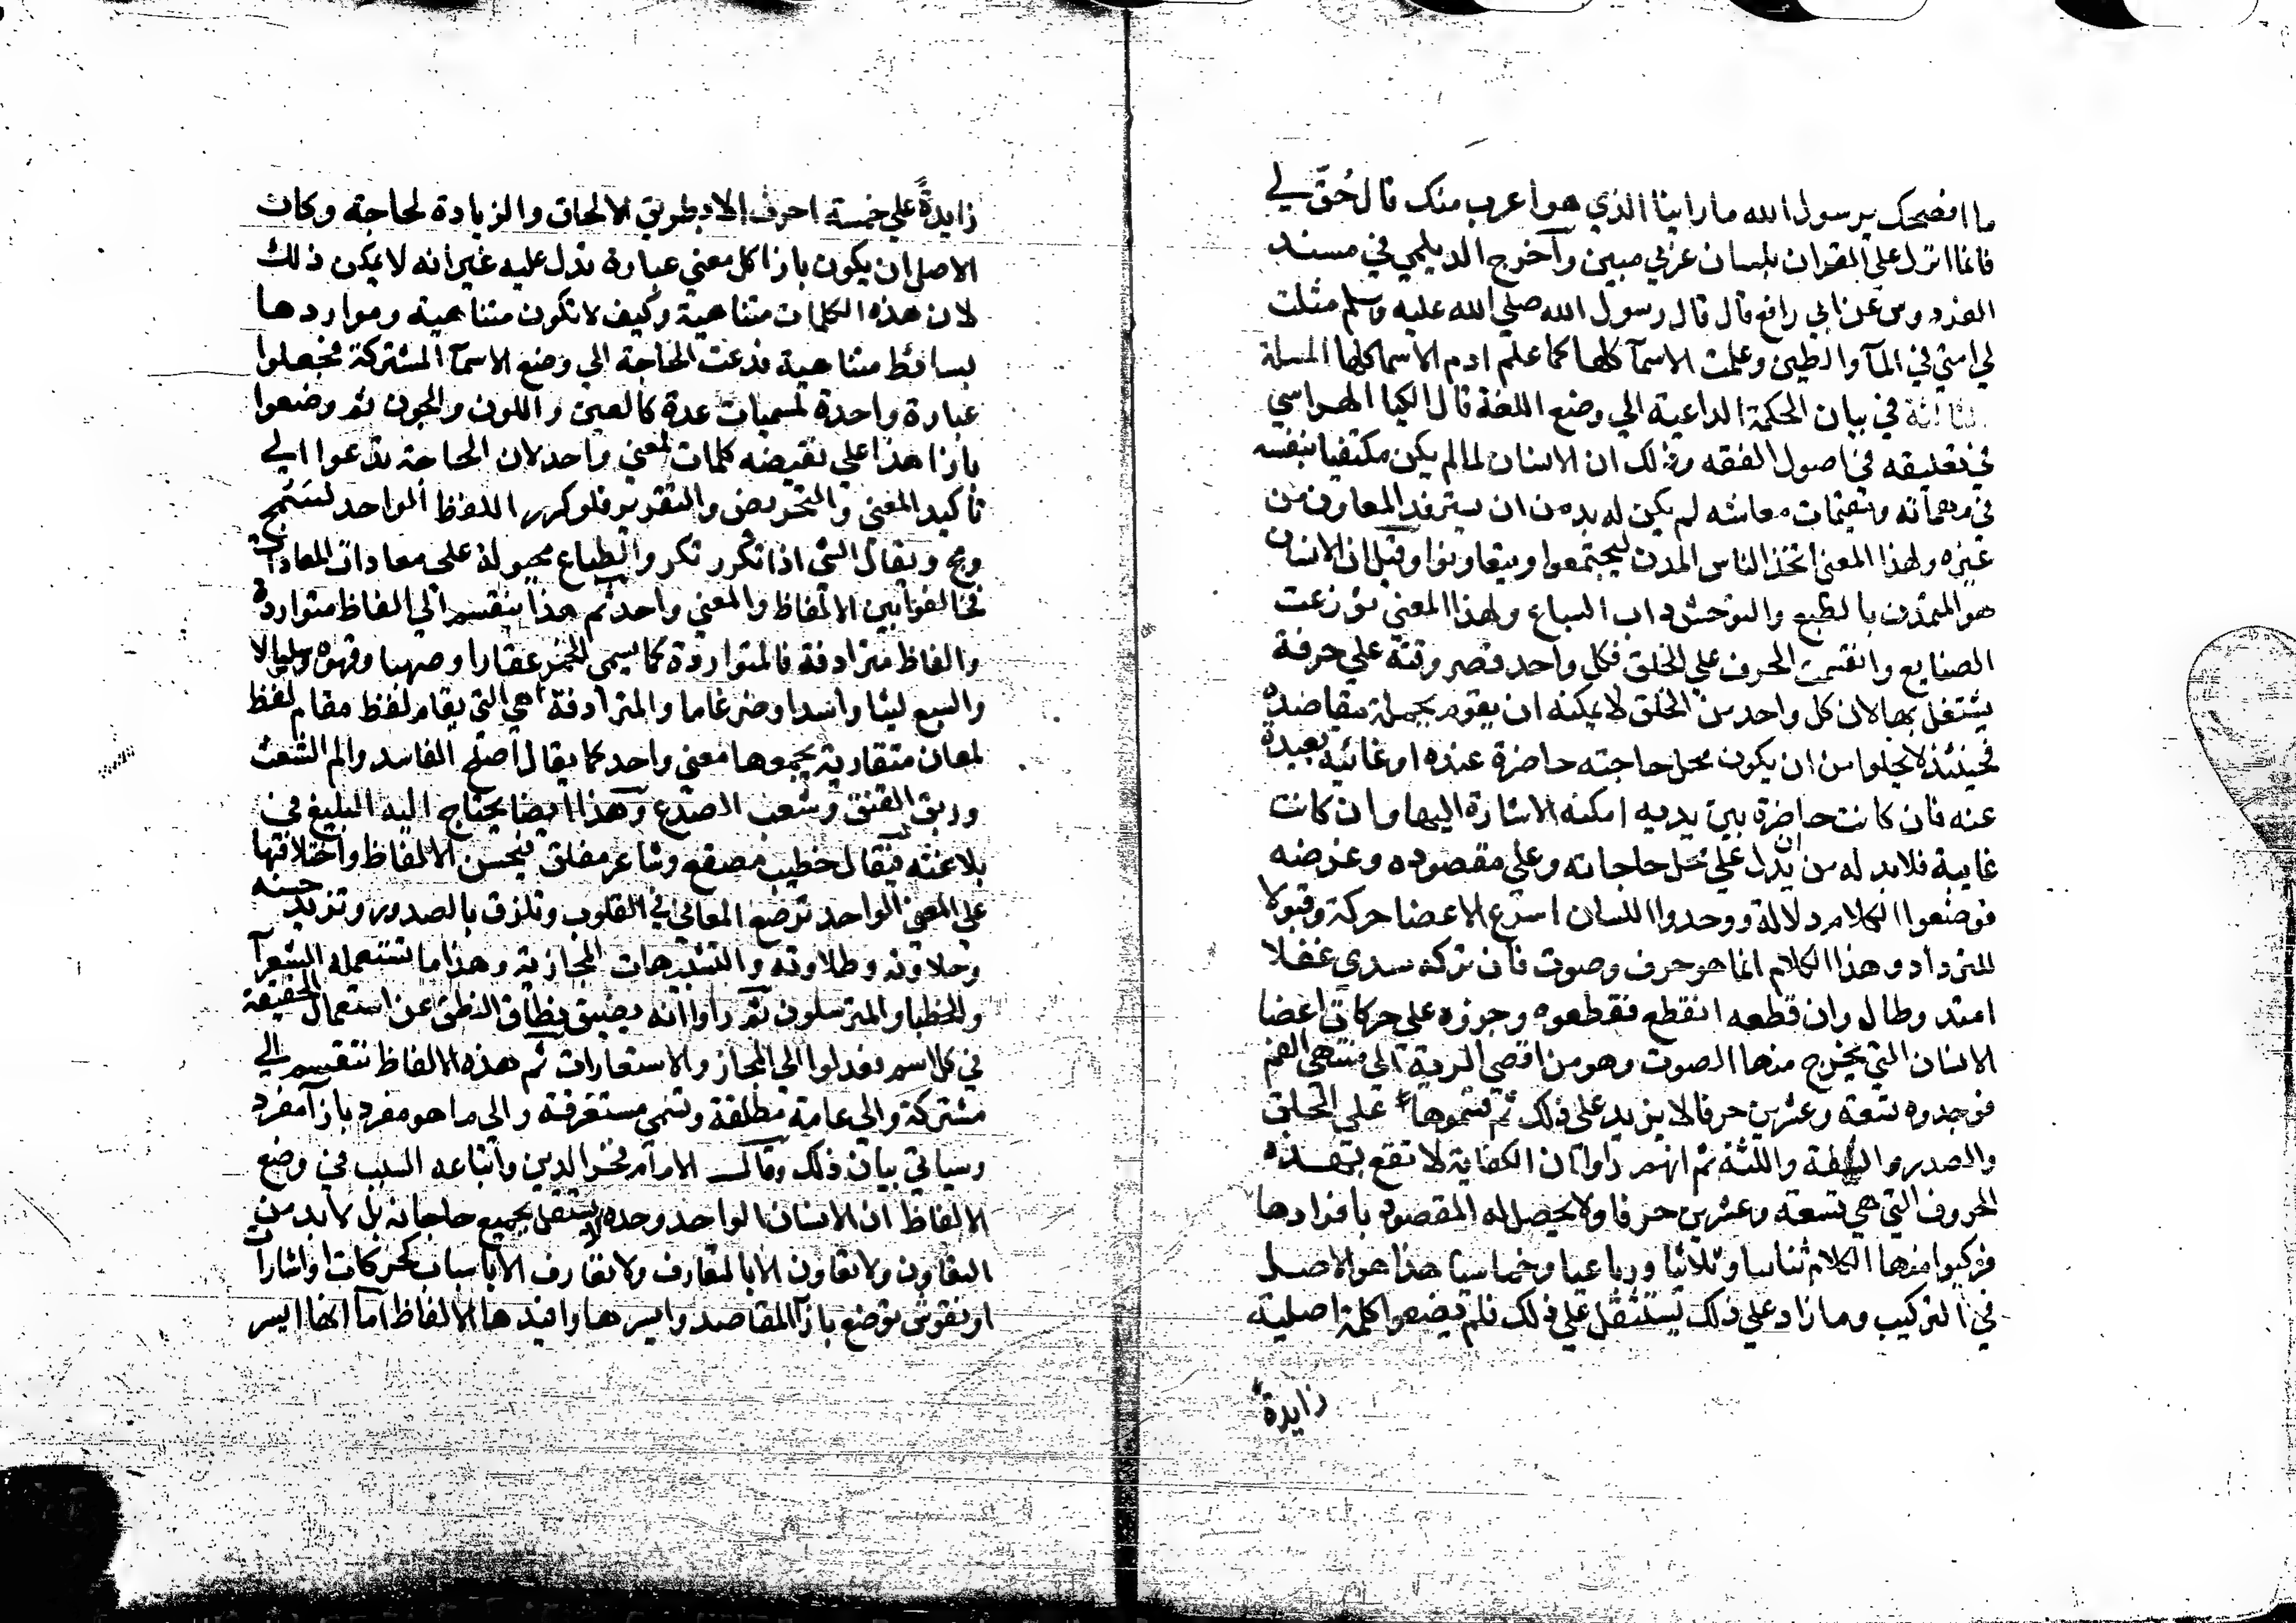 ما افصحك يرسول الله ما راينا الذي هو اعرب منك قال حُقّ لي
فانما انزل علي القران بلسان عربي مبين وآخرج الديلمي في مسند
الفردوس عن ابي رافع قال قال رسول الله صلي الله عليه وسلم مثلت
لي امتي في المآ والطين وعلمت الاسمآ كلها كما علم ادم الاسما كلها المسلة
الثالثة في بيان الحكمة الداعية الي وضع اللغة قال الكيا الهراسي
في تعليقه في اصول الفقه وذلك ان الانسان لما لم يكن مكتفيا بنفسه
في مهماته ومقيمات معاشه لم يكن له بد من ان يسترفد المعاون من
غيره ولهذا المعني اتخذ الناس المدن ليجتمعوا ويتعاونوا وقيل ان الانسان
هو المتمدن بالطبع والتوحش داب السباع ولهذا المعني توزعت
الصنايع وانقسمت الحرف علي الخلق فكل واحد قصر وقته علي حرفة
يشتغل بها لان كل واحد من الخلق لا يمكنه ان يقوم بجملة مقاصده
فحينئذ لا يخلوا من ان يكون محل حاجته حاضرة عنده او غائبة بعيدة
عنه فان كانت حاضرة بين يديه امكنه الاشارة اليها وان كانت
غايبة فلابد له من ان يدل علي محل حاجاته وعلي مقصوده وغرضه
فوضعوا الكلام دلالة ووجدوا اللسان اسرع الاعضا حركة وقبولا
للترداد وهذا الكلام انما هو حرف وصوت فان تركه سدي غفلا
امتد وطال وان قطعه انقطع فقطعوه وجزوه علي حركات اعضا
الانسان التي يخرج منها الصوت وهو من اقصي الرية الي منتهي الفم
فوجدوه تسعة وعشرين حرفا لا يزيد علي ذلك ثم قسموها علي الحلق
والصدر والشفة واللثة ثم انهم راوا ان الكفاية لا تقع بهذه
الحروف التي هي تسعة وعشرين حرفا ولا يحصل له المقصود بافرادها
فركبوا منها الكلام ثنائيا وثلاثيا ورباعيا وخماسيا هذا هو الاصل
في التركيب وما زاد علي ذلك يستثقل علي ذلك فلم يضعوا كلمة اصلية
زايدةً
زايدةً علي خمسة احرف الا بطريق الالحاق والزيادة لحاجة وكان
الاصل ان يكون بازا كل معني عبارة تدل عليه غير انه لا يمكن ذلك
لان هذه الكلمات متناهية وكيف لا تكون متناهية ومواردها
بسائط متناهية فدعت الحاجة الي وضع الاسمآ المشتركة فجعلوا
عبارة واحدة لمسميات عدة كالعين واللون والجون ثم وضعوا
بازا هذا علي نقيضه كلمات لمعني واحد لان الحاجة تدعوا الي
تاكيد المعني والتحريض والتقرير فلو كرر اللفظ الواحد لسمج
ومج ويقال الشي اذا تكرر تكرر والطباع مجبولة علي معادات المعادات
فخالفوا بين الالفاظ والمعني واحد ثم هذا ينقسم الي الفاظ متواردة
والفاظ مترادفة فالمتواردة كما يسمي الخمر عقارا وصهبا وقهوه وسلسالا
والسبع ليثا واسدا وضرغاما والمترادفة هي التي يقام لفظ مقام لفظ
لمعان متقاربة يجمعها معني واحد كما يقال اصلح الفاسد والم الشعث
ورتق الفتق وشعب الصدع وهذا ايضا يحتاج اليه البليغ في
بلاغته فيقال خطيب مصقع وشاعر مفلق فبحسن الالفاظ واختلافها
علي المعني الواحد ترصع المعاني في القلوب وتلزق بالصدور وتزيد حسنه
وحلاوته وطلاوته والتشبيهات المجازية وهذا ما تستعمله الشعرآ
والخطبا والمترسلون ثم راوا انه يضيق نطاق النطق عن استعمال الحقيقة
في كل اسم فعدلوا الي المجاز والاستعارات ثم هذه الالفاظ تنقسم الي
مشتركة والي عامة مطلقة وتسمي مستغرقة والي ما هو مفرد بازآ مفرد
وسياتي بيان ذلك وقال الامام فخر الدين واتباعه السبب في وضع
الالفاظ ان الانسان الواحد وحده لا يستقل بجميع حاجاته بل لابد من
التعاون ولا تعاون الا بالتعارف ولا تعارف الا باسباب كحركات او اشارات
او نقوش توضع بازآ المقاصد وايسرها وافيدها الالفاظ اما انها ايسر